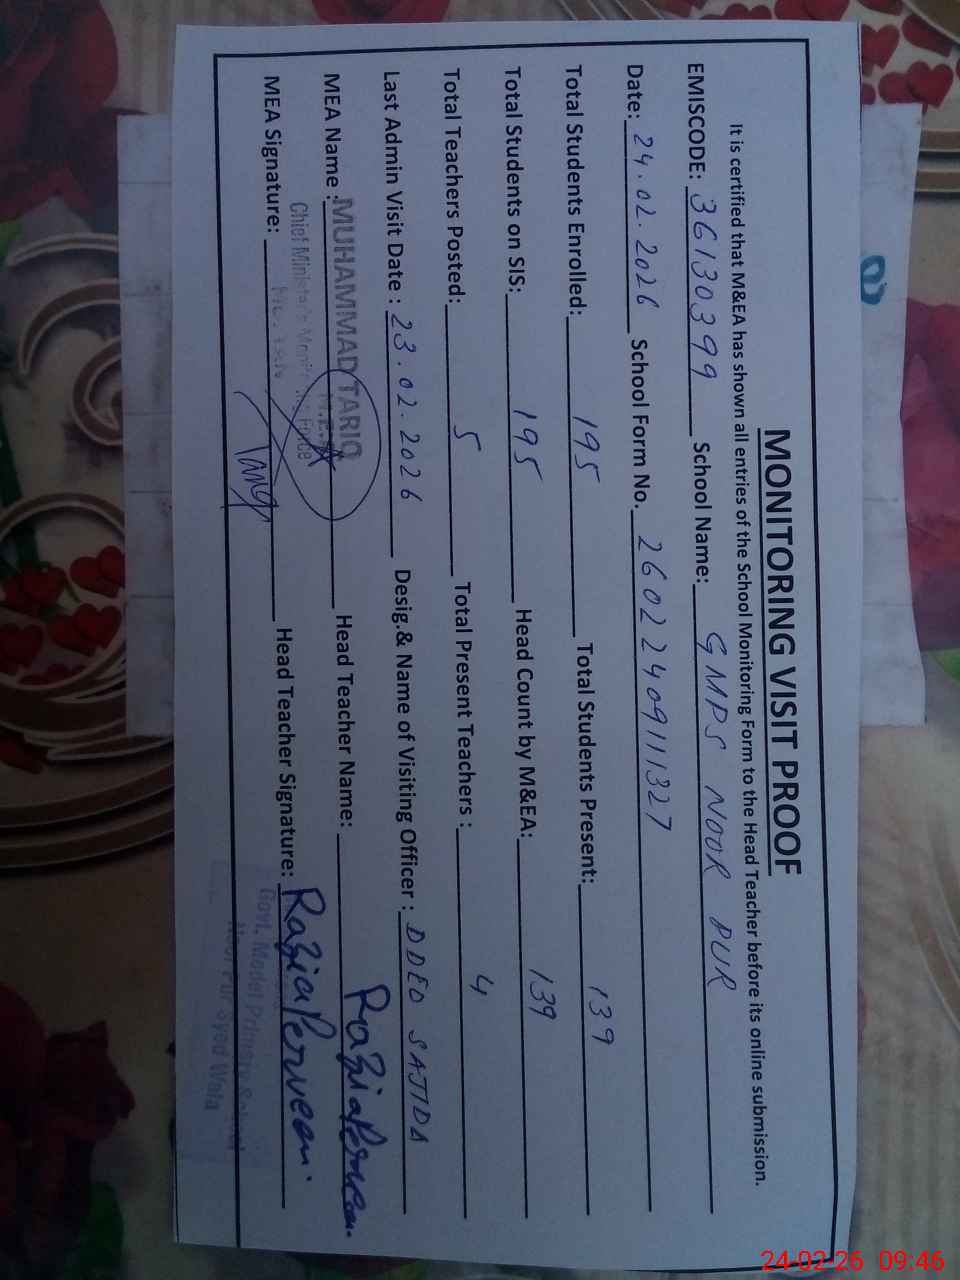 MONITORING VISIT PROOF
It is certified that M&EA has shown all entries of the School Monitoring Form to the Head Teacher before its online submission.
EMISCODE: 36130399 School Name: GMPS NOOR PUR
Date: 24.02.2026 School Form No. 2602240911327
Total Students Enrolled: 195 Total Students Present: 139
Total Students on SIS: 195 Head Count by M&EA: 139
Total Teachers Posted: 5 Total Present Teachers : 4
Last Admin Visit Date : 23.02.2026 Desig.& Name of Visiting Officer : DDEO SAJIDA
MEA Name : MUHAMMAD TARIQ Head Teacher Name: Razia Perveen.
M.E.A
Chief Minister's Monitoring Force
MEA Signature: Tariq Head Teacher Signature: Razia Perveen.
Govt. Model Primary School
Noor Pur Syed Wala
24-02-26 09:46